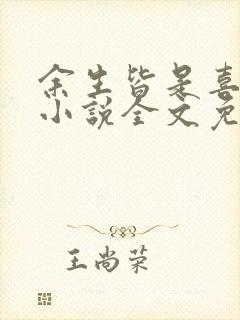 余生皆是喜
小说全文免
王尚荣